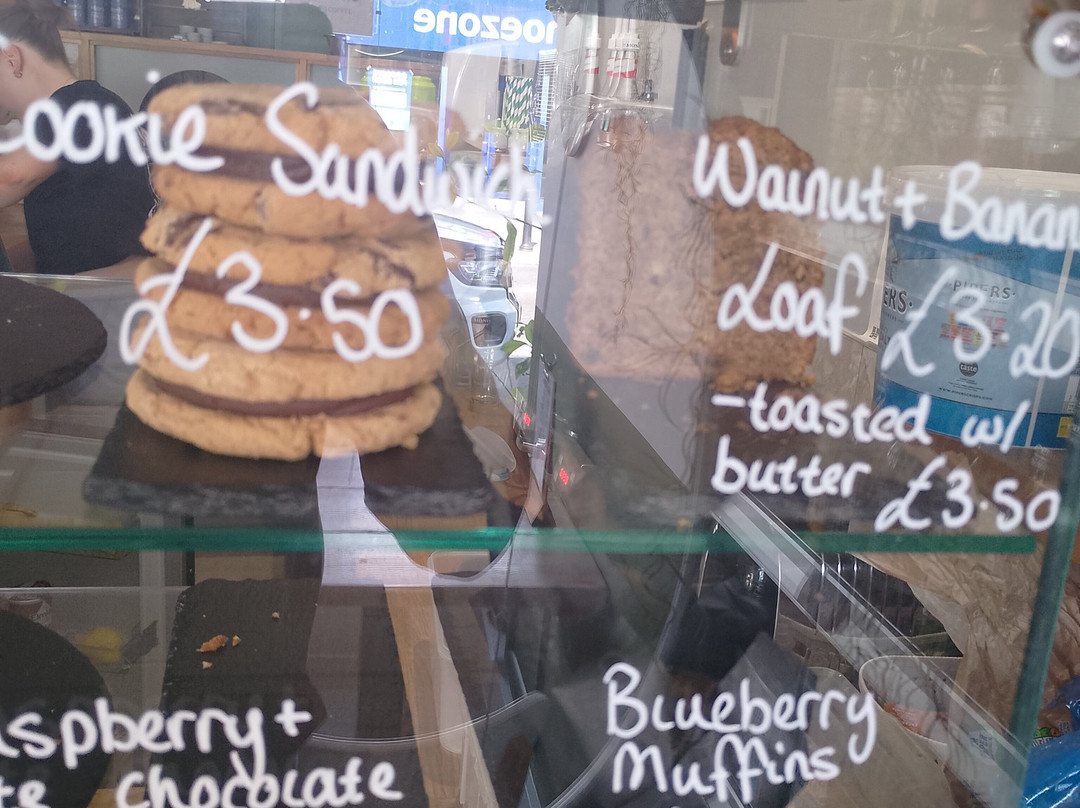 oezone
ookie Sandwich
£3.50
Walnut + Banan
Loaf £3.20
-toasted w/
butter £3.50
aspberry +
te chocolate
Blueberry
Muffins